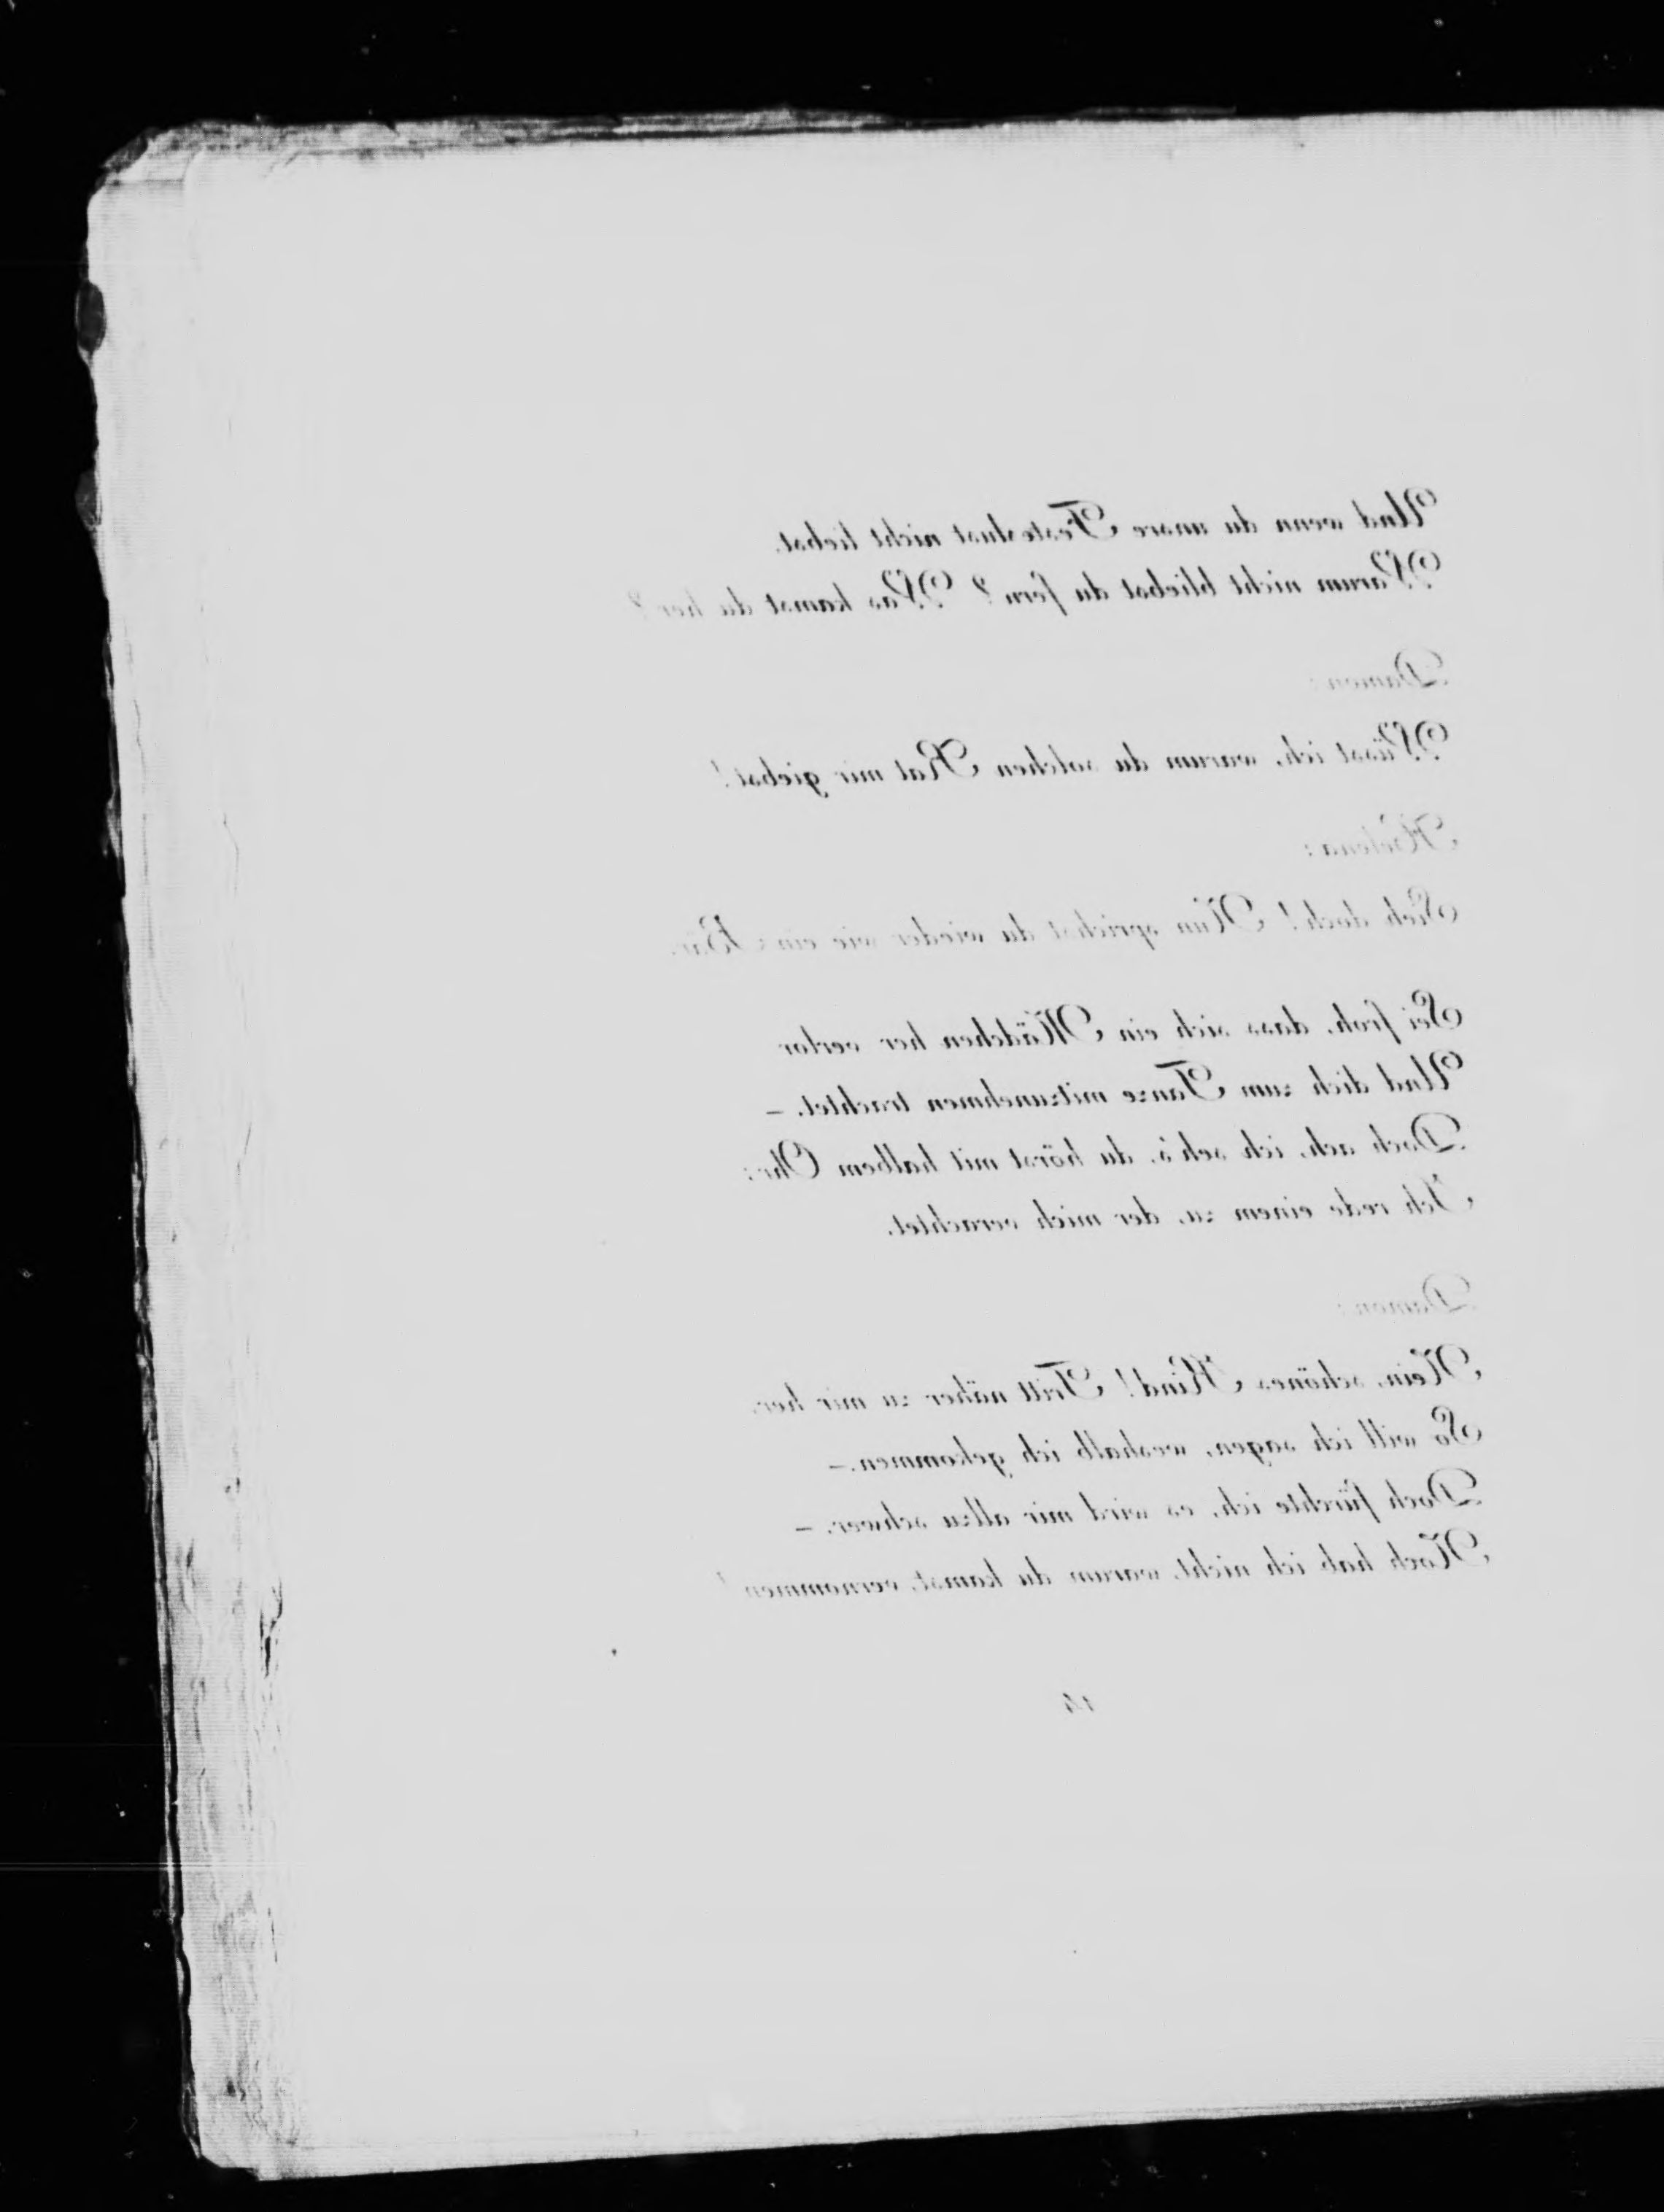 Und wenn du unsre Festeslust nicht liebst,
Warum nicht bliebst du fern? Was kamst du her?
Damon:
Wüsst ich, warum du solchen Rat mir giebst!
Helena:
Sieh doch! Nun sprichst du wieder wie ein Bär.
Sei froh, dass sich ein Mädchen her verlor
Und dich zum Tanze mitzunehmen trachtet. –
Doch ach, ich seh's, du hörst mit halbem Ohr:
Ich rede einem zu, der mich verachtet.
Damon:
Nein, schönes Kind! Tritt näher zu mir her,
So will ich sagen, weshalb ich gekommen. –
Doch fürchte ich, es wird mir allzu schwer. –
Noch hab ich nicht, warum du kamst, vernommen!
14